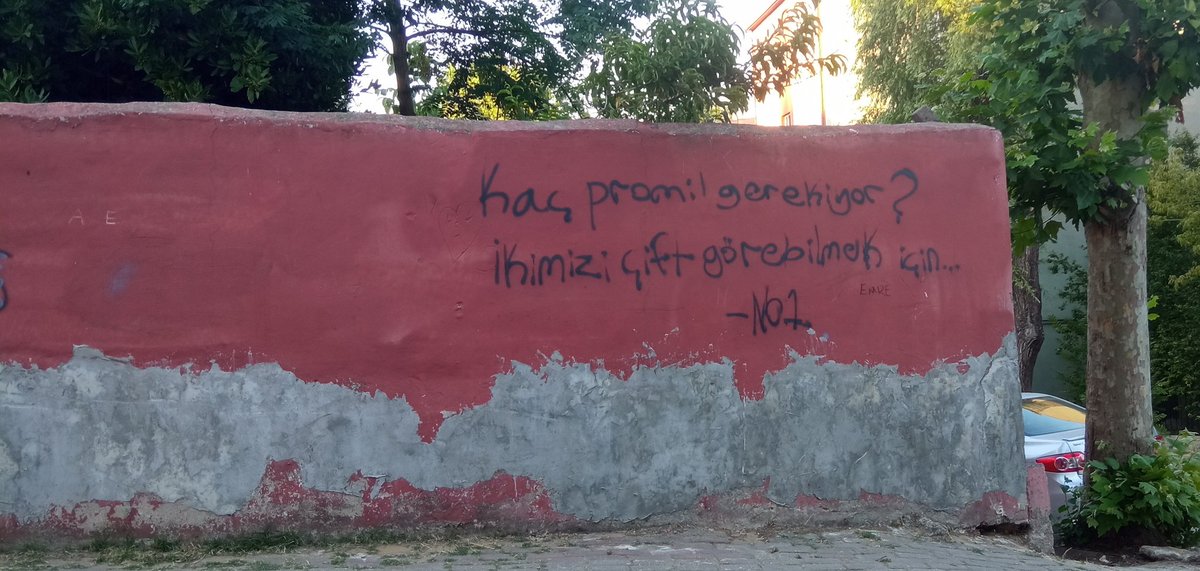 Kaç promil gerekiyor?
İkimizi çift görebilmek için...
EMRE
-No.1
A E